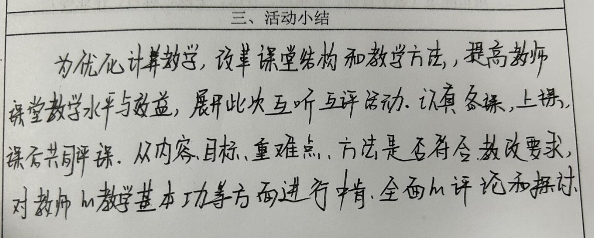 三、活动小结
为优化计算教学，改革课堂结构和教学方法，提高教师
课堂教学水平与效益，展开此次互听互评活动．认真备课，上课，
课后共同评课．从内容、目标、重难点、方法是否符合教改要求，
对教师的教学基本功等方面进行中肯、全面的评论和探讨．